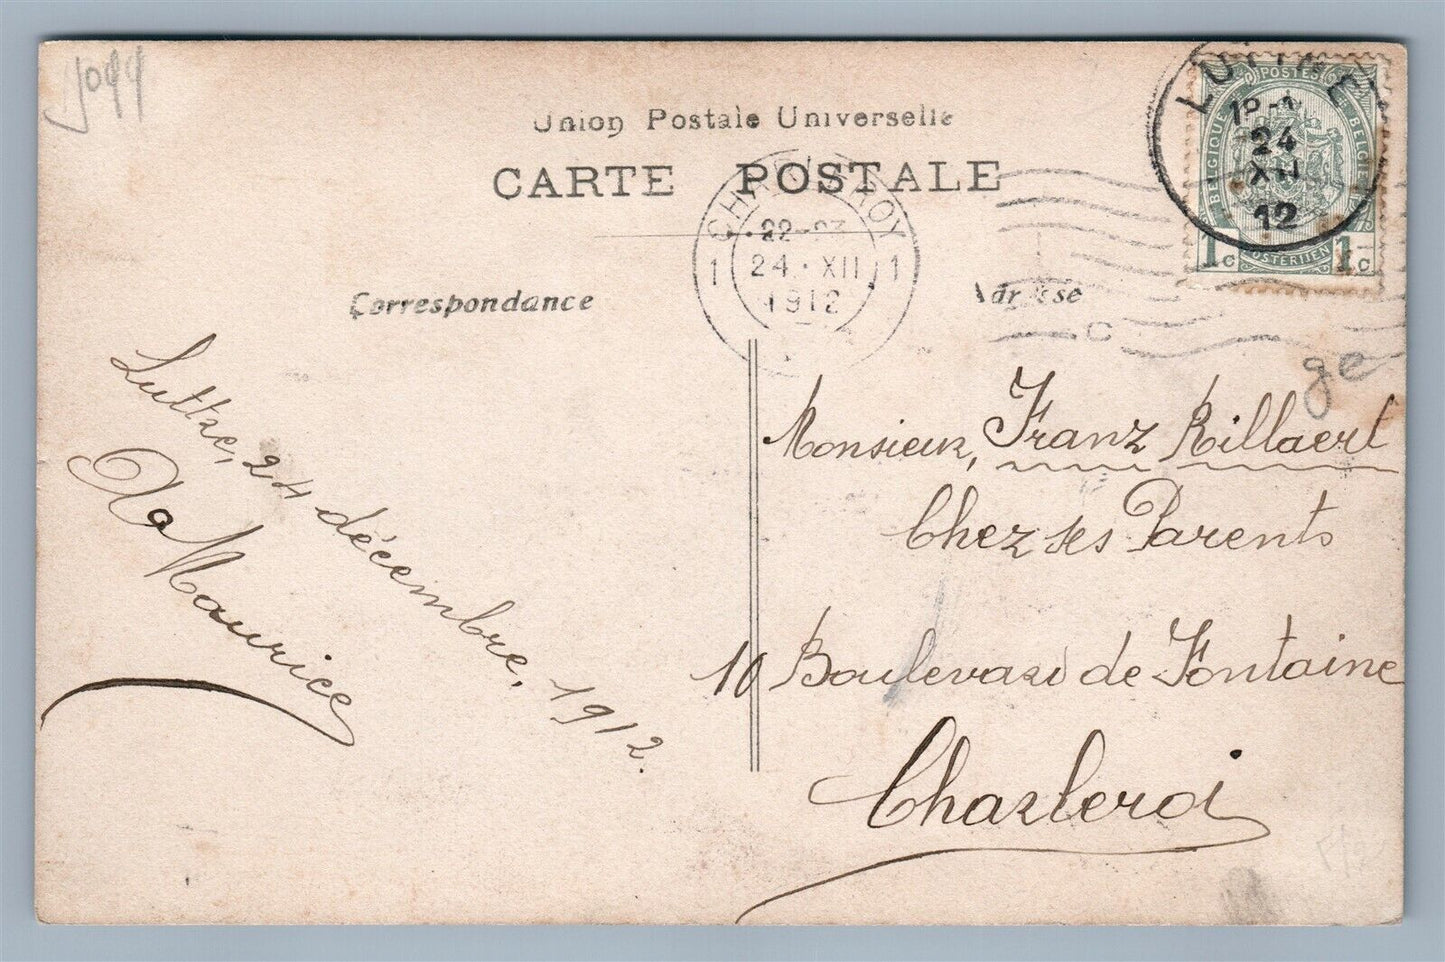 Jogg
Union Postale Universelle
CARTE POSTALE
Correspondance
Adresse
LUTTRE
24
XII
12
POSTES
BELGIQUE
BELGIË
POSTERIJEN
1c 1c
CHARLEROY
22-23
1 24 · XII 1
1912
ge
Luttre, 24 décembre, 1912.
Maurice
Monsieur, Franz Rillaert
Chez ses Parents
10 Boulevard de Fontaine
Charleroi